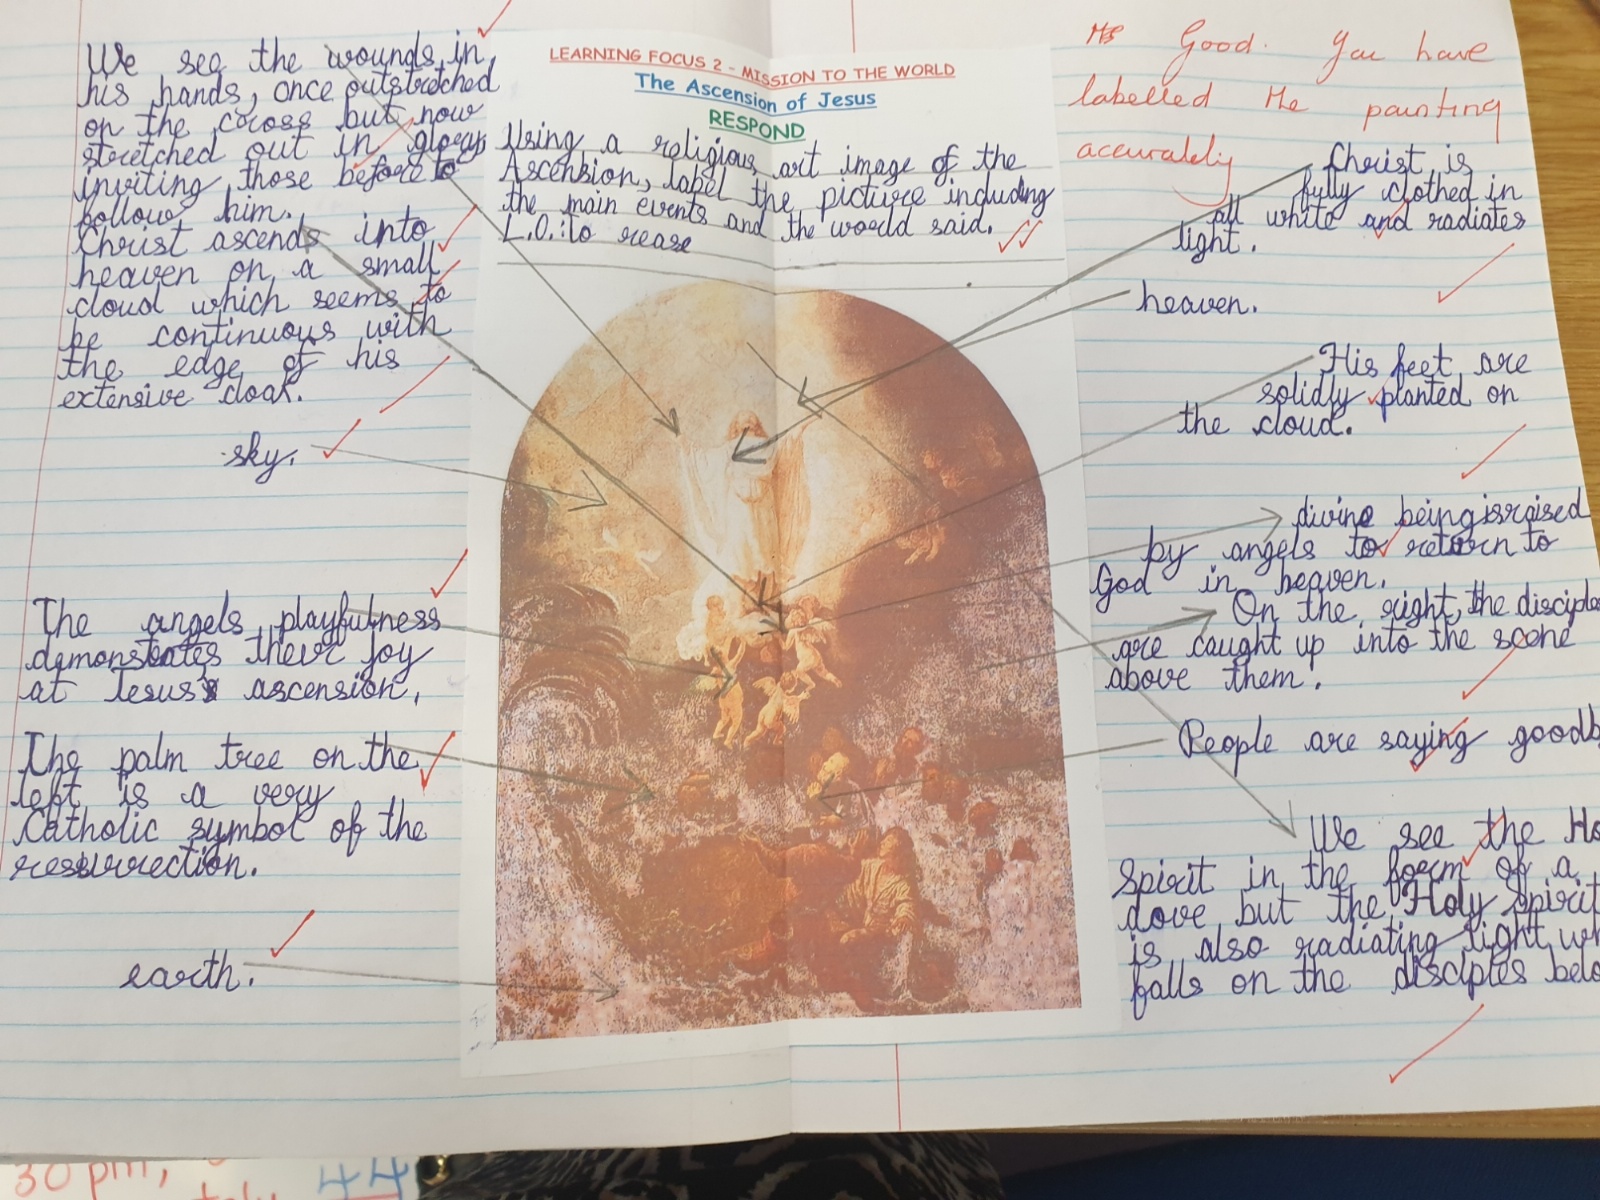 We see the wounds in
his hands, once outstretched
on the cross but now
stretched out in glory
inviting those before to
follow him.
Christ ascends into
heaven on a small
cloud which seems to
be continuous with
the edge of his
extensive cloak.
sky.
The angels playfulness
demonstrates their joy
at Jesus's ascension.
The palm tree on the
left is a very
Catholic symbol of the
ressurrection.
earth.
LEARNING FOCUS 2 - MISSION TO THE WORLD
The Ascension of Jesus
RESPOND
Using a religious art image of the
Ascension, label the picture including
the main events and the world said.
L.O.: to
Good. You have
labelled the painting
accurately
Christ is
fully clothed in
all white and radiates
light.
heaven.
His feet are
solidly planted on
the cloud.
divine being is raised
by angels to return to
God in heaven.
On the right, the
are caught up into the scene
above them.
People are saying
We see the
Spirit in the form of a
dove but the Holy Spirit
is also radiating light
falls on the disciples
30 pm,
44